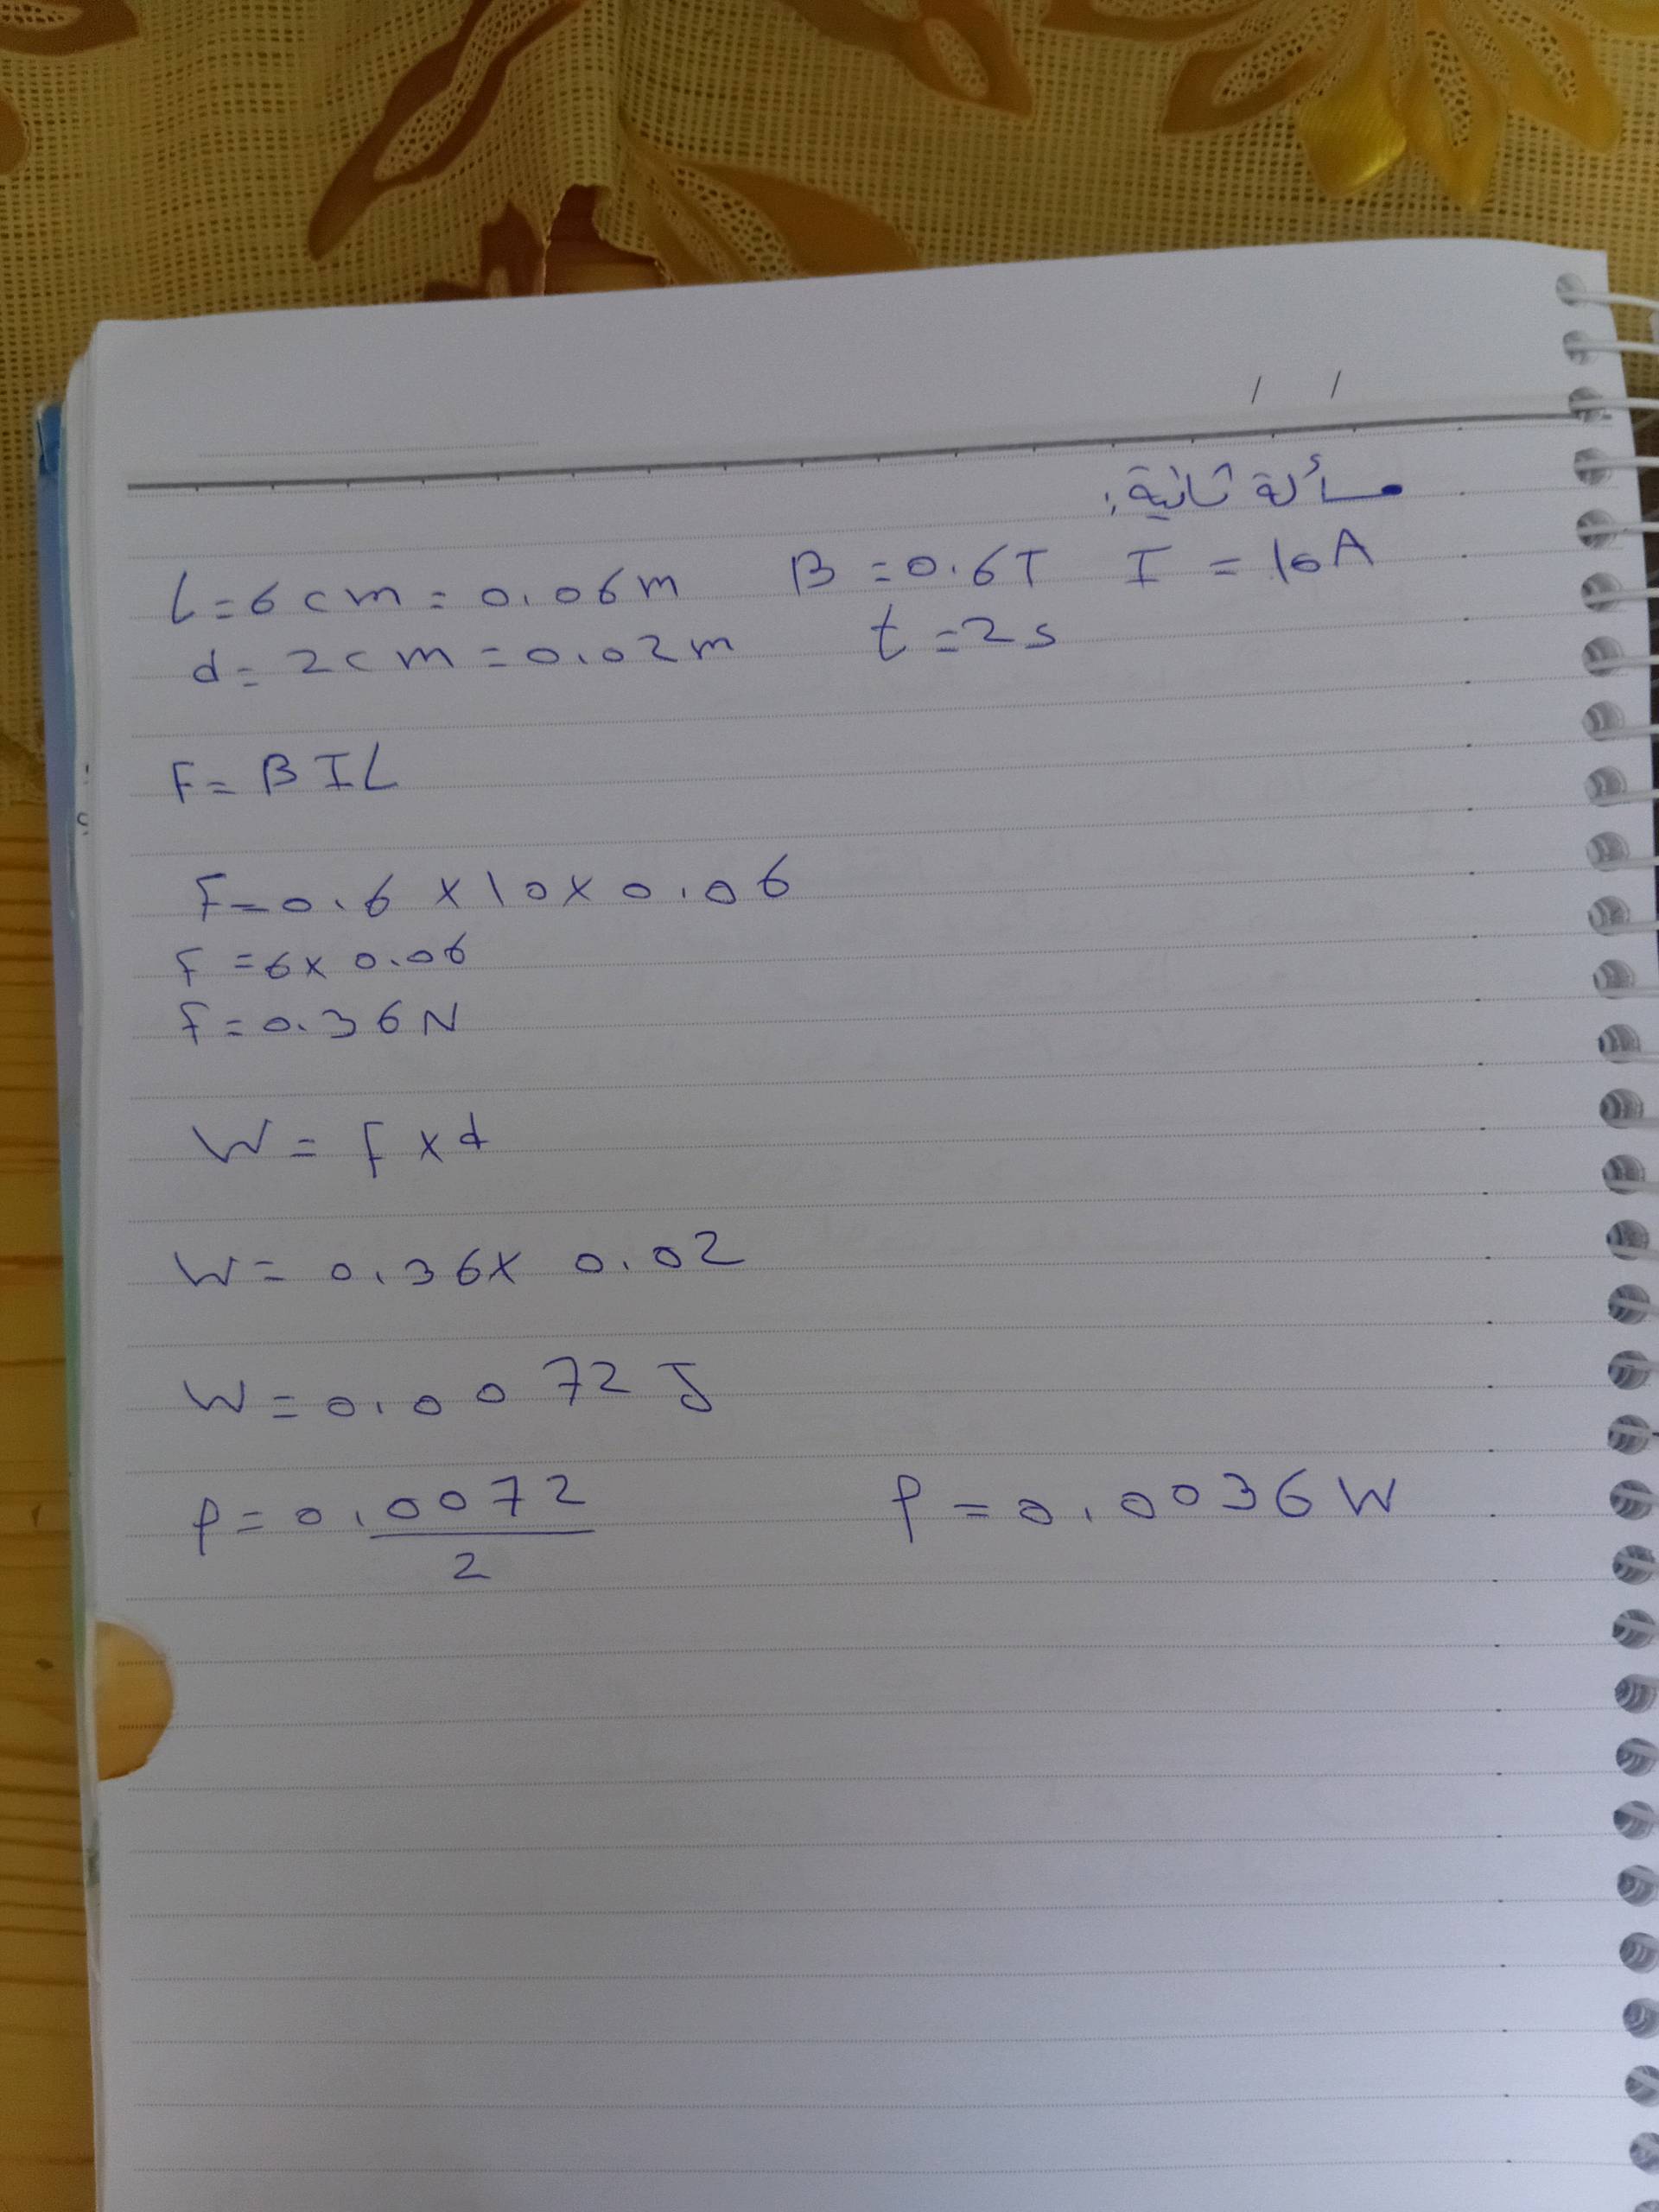 / /
مسألة ثانية:
L=6cm=0.06m B=0.6T I=10A
d=2cm=0.02m t=2s
F=BIL
F=0.6×10×0.06
F=6×0.06
F=0.36N
W=F×d
W=0.36×0.02
W=0.0072J
P=0.0072/2 P=0.0036W